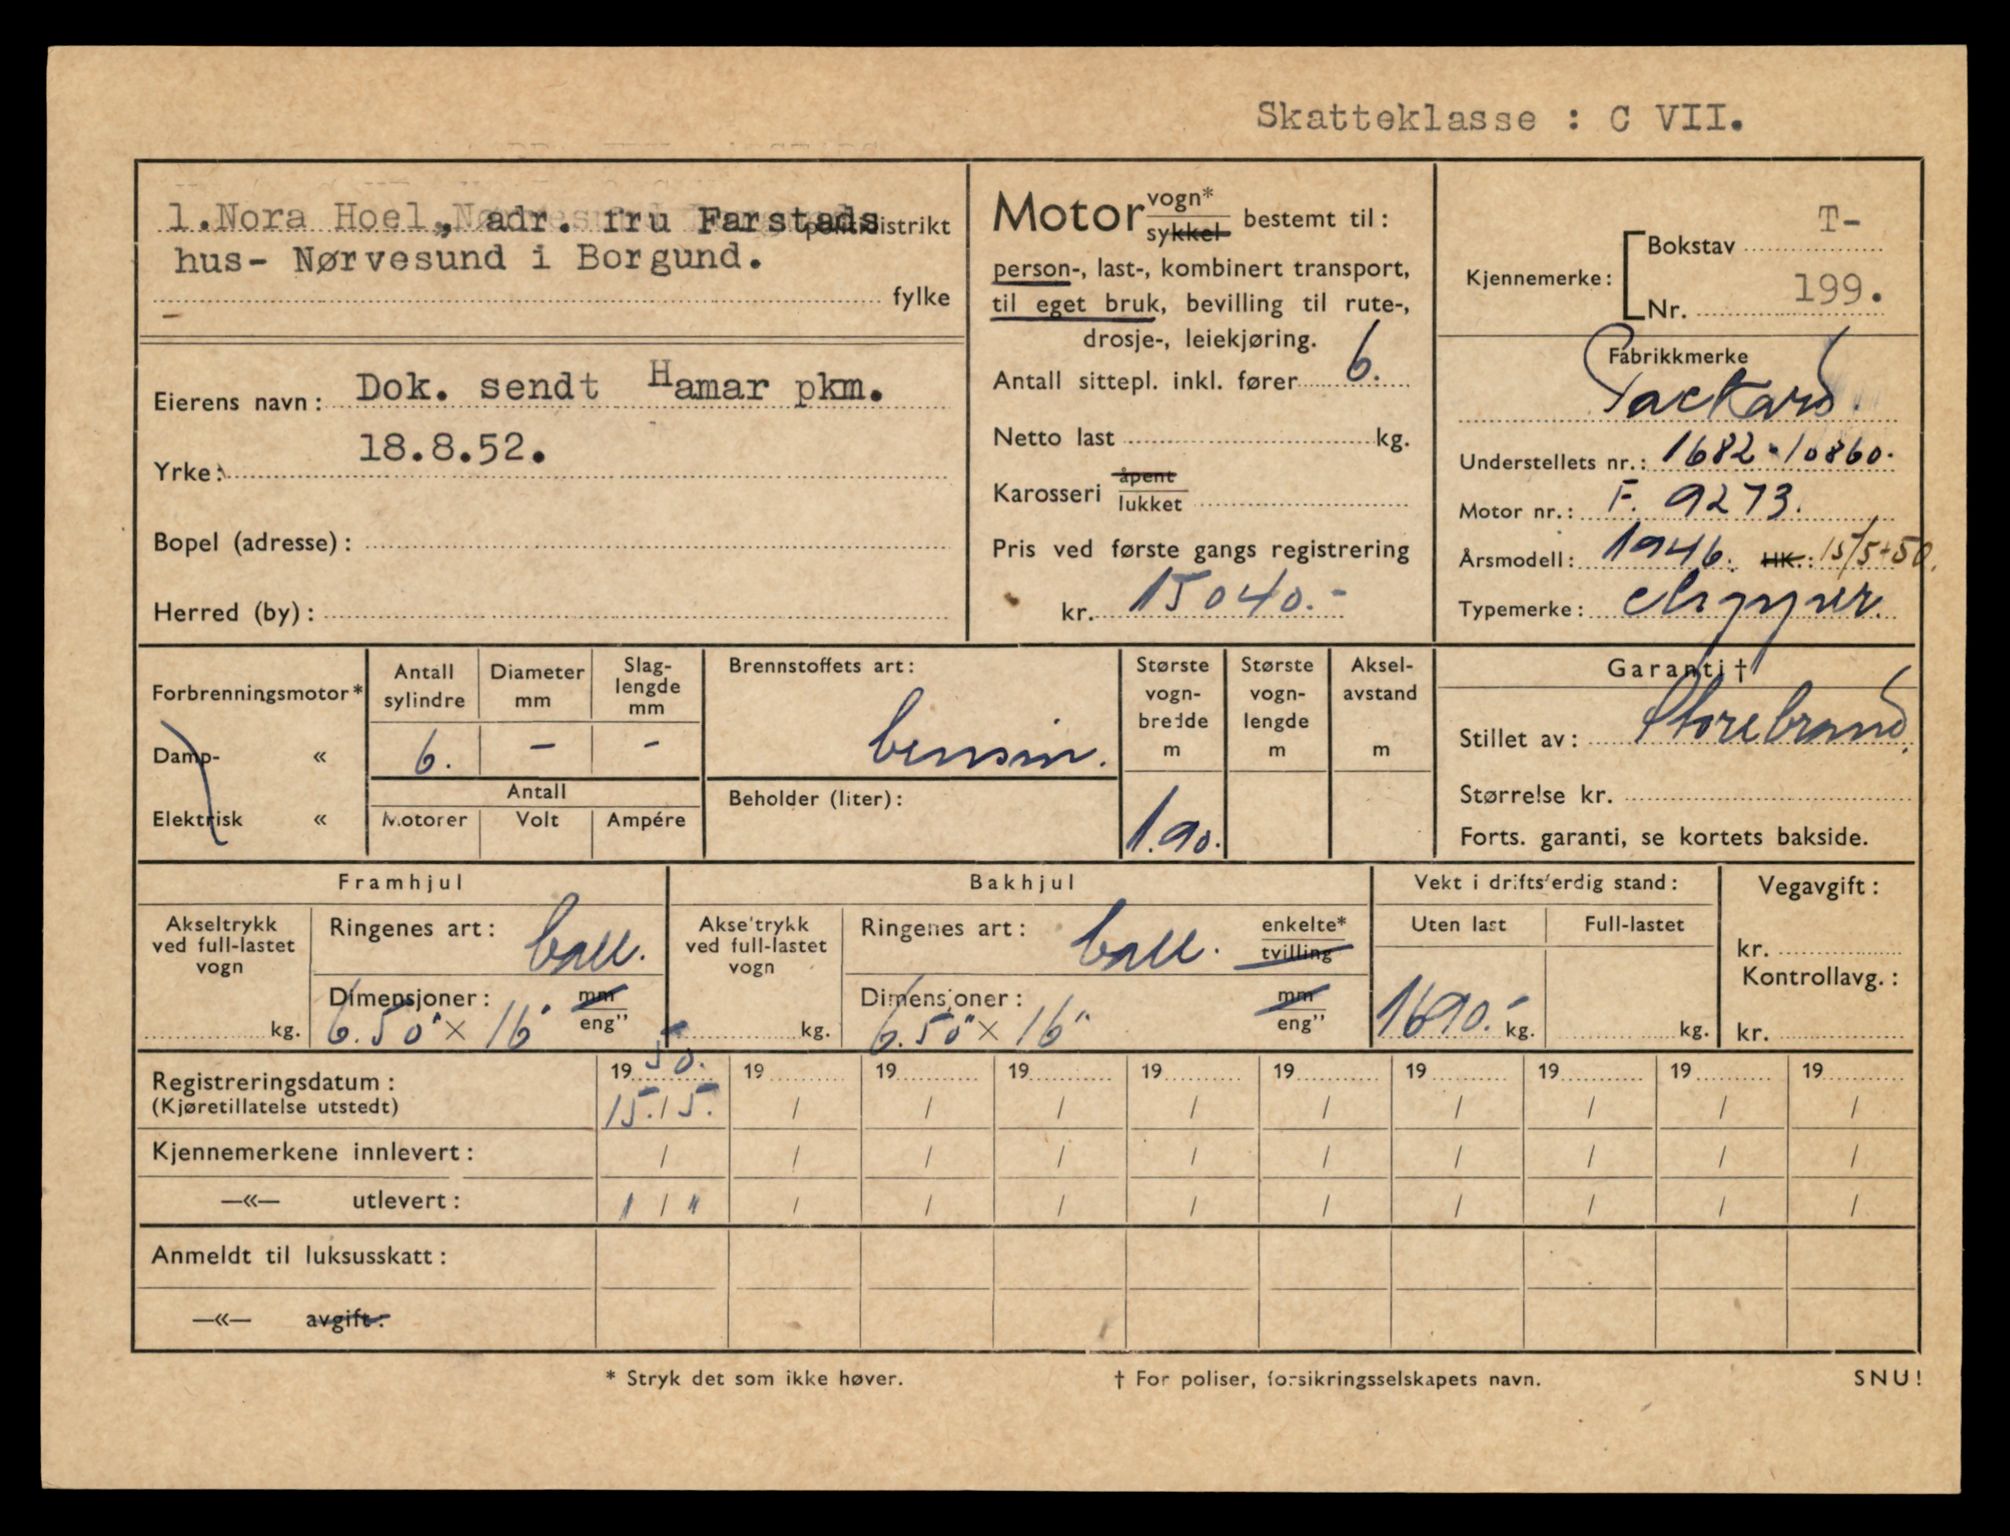 Skatteklasse : C VII.
1. Nora Hoel, adr. fru Farstads politidistrikt
hus- Nørvesund i Borgund.
fylke
Eierens navn: Dok. sendt Hamar pkm.
Yrke: 18.8.52.
Bopel (adresse):
Herred (by):
Motor vogn* sykkel bestemt til:
person-, last-, kombinert transport,
til eget bruk, bevilling til rute-,
drosje-, leiekjøring.
Antall sittepl. inkl. fører 6.
Netto last kg.
Karosseri åpent lukket
Pris ved første gangs registrering
kr. 15040.-
Kjennemerke: Bokstav T-
Nr. 199.
Fabrikkmerke
Packard.
Understellets nr.: 1682-10860.
Motor nr.: F. 9273.
Årsmodell: 1946. HK.: 15/5-50.
Typemerke: Clipper.
Forbrenningsmotor*
Damp- «
Elektrisk «
Antall sylindre
Diameter mm
Slag-lengde mm
6. - -
Antall
Motorer Volt Ampére
Brennstoffets art:
bensin.
Beholder (liter):
Største vogn-bredde m
1.90.
Største vogn-lengde m
Aksel-avstand m
Garanti †
Stillet av: Storebrand.
Størrelse kr.
Forts. garanti, se kortets bakside.
Framhjul
Akseltrykk
ved full-lastet
vogn
kg.
Ringenes art: ball.
Dimensjoner: mm eng"
6.50" x 16"
Bakhjul
Akseltrykk
ved full-lastet
vogn
kg.
Ringenes art: ball. enkelte* tvilling
Dimensjoner: mm eng"
6.50" x 16"
Vekt i driftsferdig stand:
Uten last Full-lastet
1690.- kg. kg.
Vegavgift:
kr.
Kontrollavg.:
kr.
Registreringsdatum: 1950. 19 19 19 19 19 19 19 19 19
(Kjøretillatelse utstedt) 15./5. / / / / / / / / /
Kjennemerkene innlevert: / / / / / / / / / /
—«— utlevert: " / " / / / / / / / / /
Anmeldt til luksusskatt:
—«— avgift:
* Stryk det som ikke høver. † For poliser, forsikringsselskapets navn. SNU!